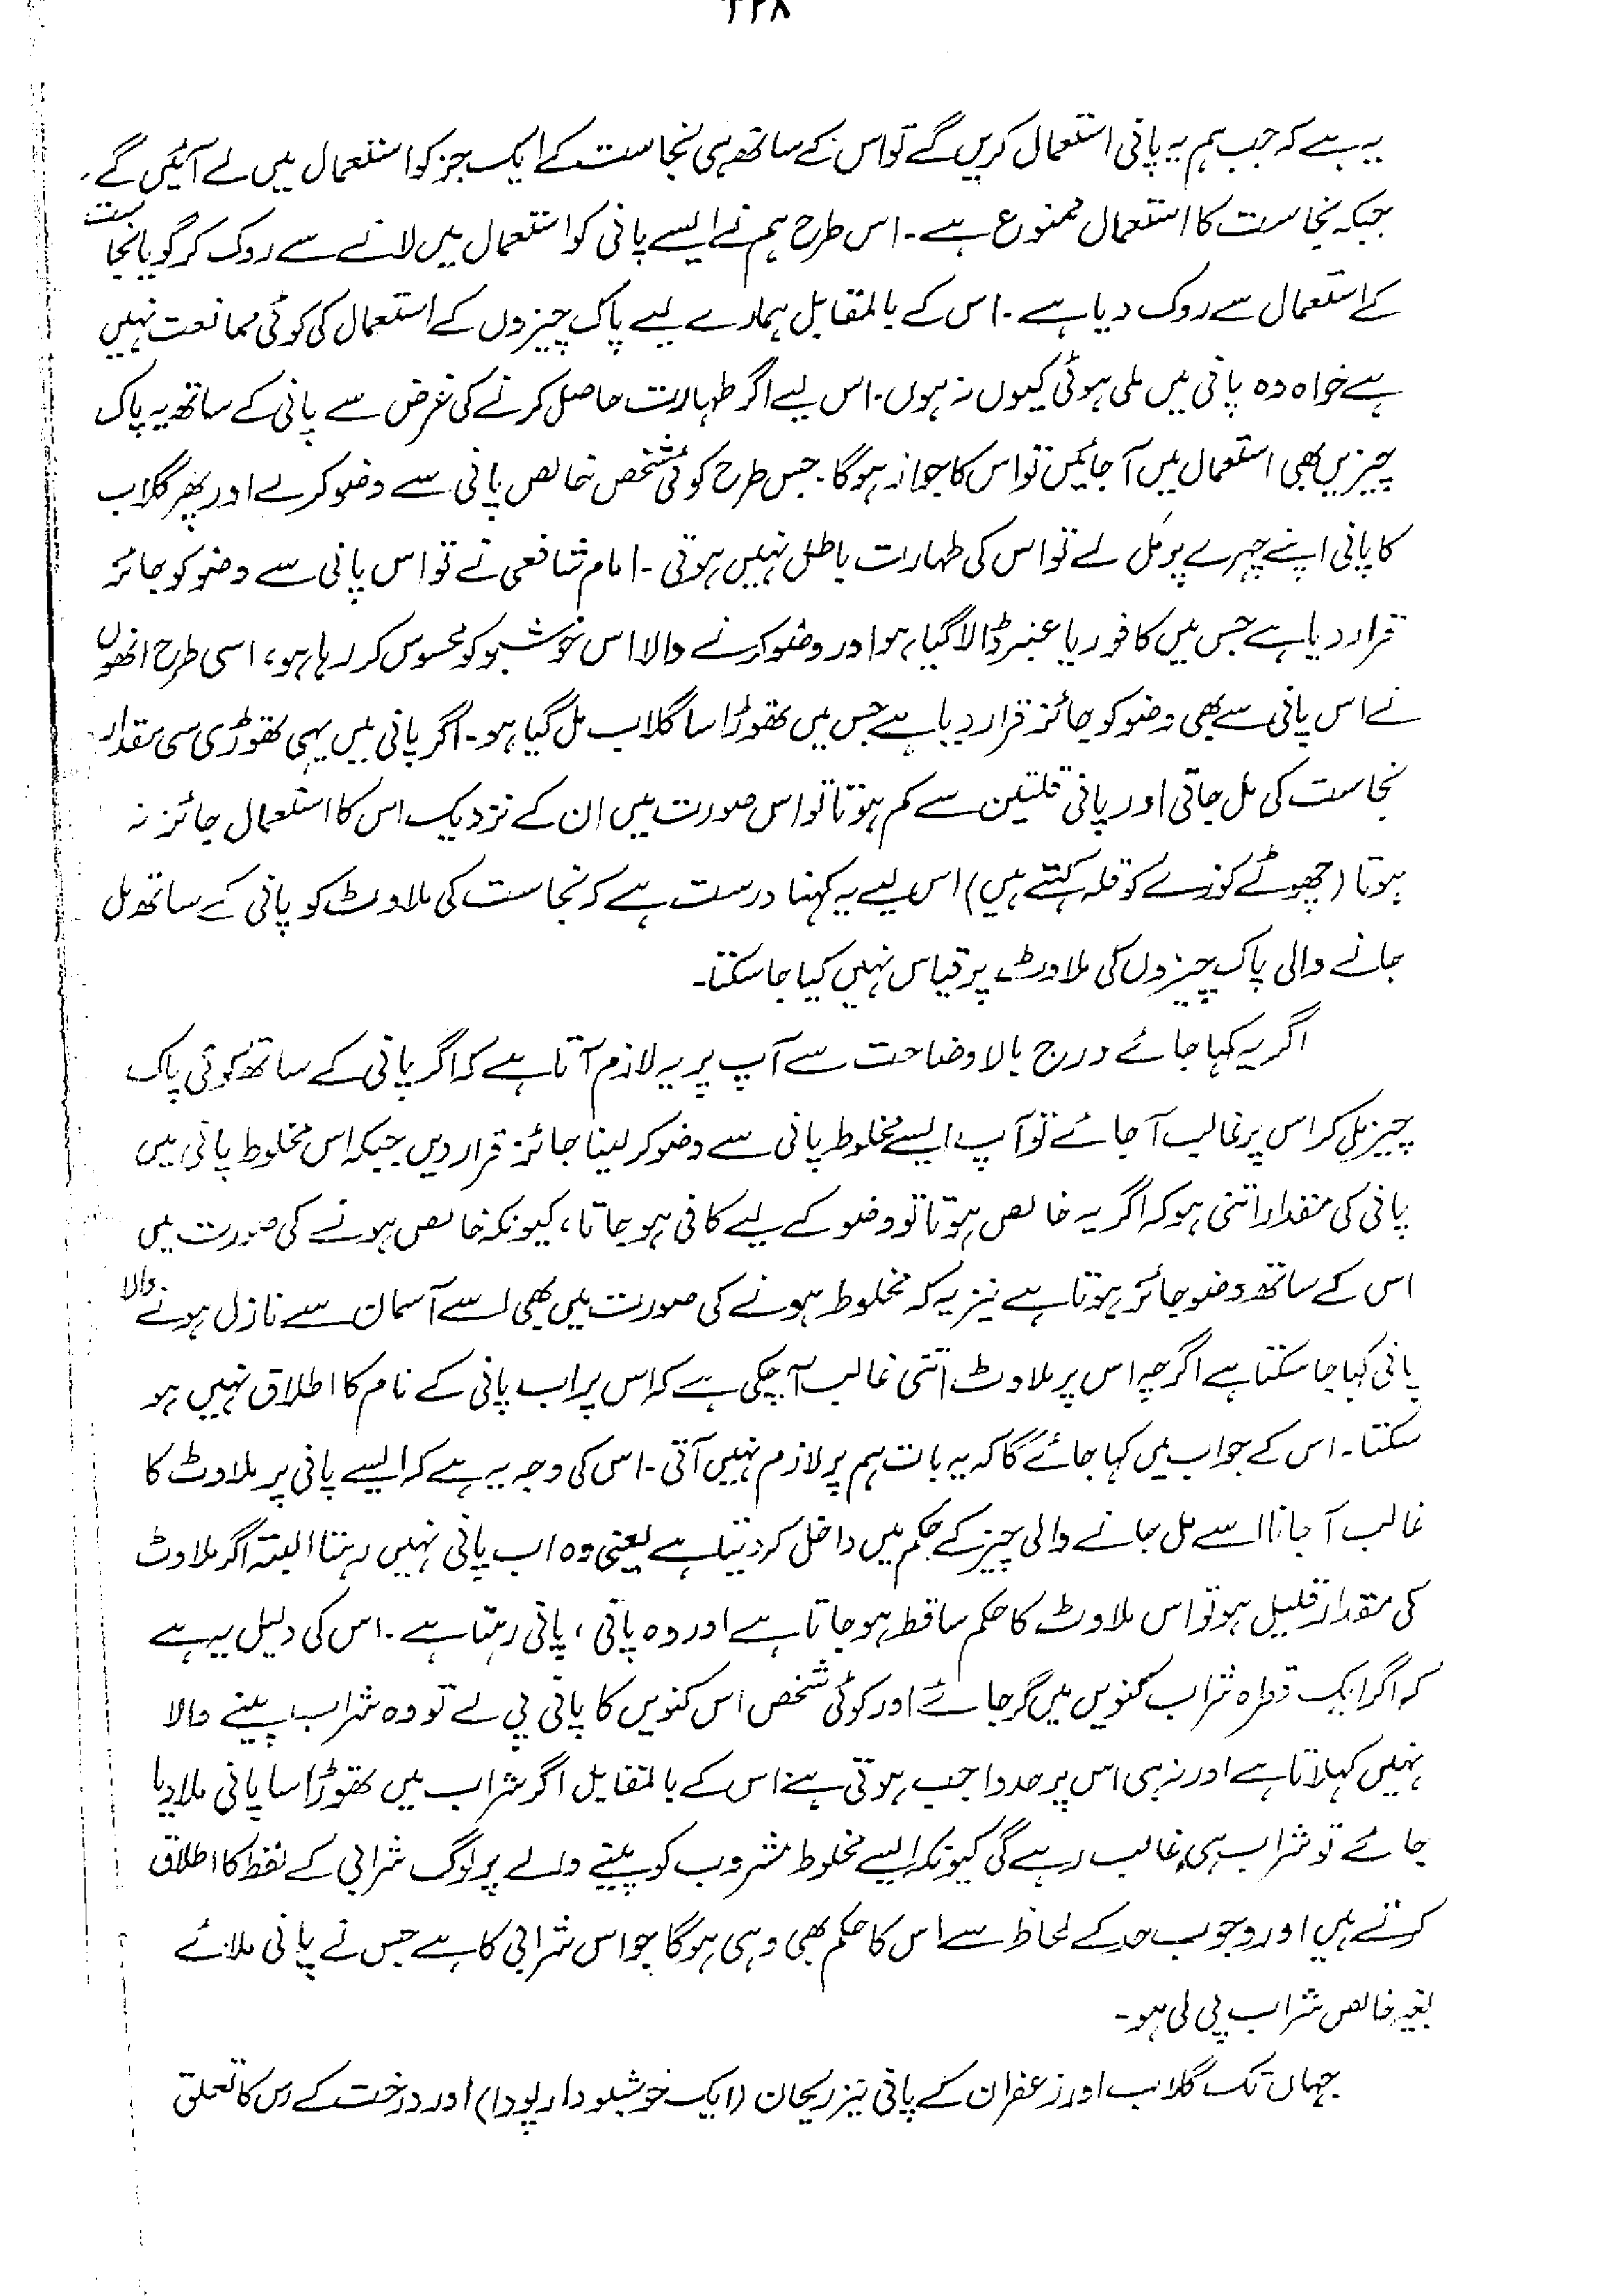 ۲۲۸
یہ ہے کہ جب ہم یہ پانی استعمال کریں گے تو اس کے ساتھ ہی نجاست کے ایک جز کو استعمال میں لے آئیں گے،
جبکہ نجاست کا استعمال ممنوع ہے۔ اس طرح ہم نے ایسے پانی کو استعمال میں لانے سے روک کر گویا نجاست
کے استعمال سے روک دیا ہے۔ اس کے بالمقابل ہمارے لیے پاک چیزوں کے استعمال کی کوئی ممانعت نہیں
ہے خواہ وہ پانی میں ملی ہوئی کیوں نہ ہوں۔ اس لیے اگر طہارت حاصل کرنے کی غرض سے پانی کے ساتھ یہ پاک
چیزیں بھی استعمال میں آ جائیں تو اس کا جواز ہوگا۔ جس طرح کوئی شخص خالص پانی سے وضو کرلے اور پھر گلاب
کا پانی اپنے چہرے پر مَل لے تو اس کی طہارت باطل نہیں ہوتی۔ امام شافعی نے تو اس پانی سے وضو کو جائز
قرار دیا ہے جس میں کافور یا عنبر ڈالا گیا ہو اور وضو کرنے والا اس خوشبو کو محسوس کر رہا ہو، اسی طرح انھوں
نے اس پانی سے بھی وضو کو جائز قرار دیا ہے جس میں تھوڑا سا گلاب مل گیا ہو۔ اگر پانی میں یہی تھوڑی سی مقدار
نجاست کی مل جاتی اور پانی قلتین سے کم ہوتا تو اس صورت میں ان کے نزدیک اس کا استعمال جائز نہ
ہوتا (چھوٹے کوزے کو قلہ کہتے ہیں) اس لیے یہ کہنا درست ہے کہ نجاست کی ملاوٹ کو پانی کے ساتھ مل
جانے والی پاک چیزوں کی ملاوٹ پر قیاس نہیں کیا جا سکتا۔
اگر یہ کہا جائے درج بالا وضاحت سے آپ پر یہ لازم آتا ہے کہ اگر پانی کے ساتھ کوئی پاک
چیز مل کر اس پر غالب آ جائے تو آپ ایسے مخلوط پانی سے وضو کر لینا جائز قرار دیں جبکہ اس مخلوط پانی میں
پانی کی مقدار اتنی ہو کہ اگر یہ خالص ہوتا تو وضو کے لیے کافی ہو جاتا، کیونکہ خالص ہونے کی صورت میں
اس کے ساتھ وضو جائز ہوتا ہے نیز یہ کہ مخلوط ہونے کی صورت میں بھی اسے آسمان سے نازل ہونے والا
پانی کہا جا سکتا ہے اگرچہ اس پر ملاوٹ اتنی غالب آ چکی ہے کہ اس پر اب پانی کے نام کا اطلاق نہیں ہو
سکتا۔ اس کے جواب میں کہا جائے گا کہ یہ بات ہم پر لازم نہیں آتی۔ اس کی وجہ یہ ہے کہ ایسے پانی پر ملاوٹ کا
غالب آ جانا اسے مل جانے والی چیز کے حکم میں داخل کر دیتا ہے یعنی وہ اب پانی نہیں رہتا البتہ اگر ملاوٹ
کی مقدار قلیل ہو تو اس ملاوٹ کا حکم ساقط ہو جاتا ہے اور وہ پانی، پانی رہتا ہے۔ اس کی دلیل یہ ہے
کہ اگر ایک قطرہ شراب کنویں میں گر جائے اور کوئی شخص اس کنویں کا پانی پی لے تو وہ شراب پینے والا
نہیں کہلاتا ہے اور نہ ہی اس پر حد واجب ہوتی ہے اس کے بالمقابل اگر شراب میں تھوڑا سا پانی ملا دیا
جائے تو شراب ہی غالب رہے گی کیونکہ ایسے مخلوط مشروب کو پینے والے پر لوگ شرابی کے لفظ کا اطلاق
کرتے ہیں اور وجوب حد کے لحاظ سے اس کا حکم بھی وہی ہوگا جو اس شرابی کا ہے جس نے پانی ملائے
بغیر خالص شراب پی لی ہو۔
جہاں تک گلاب اور زعفران کے پانی نیز ریحان (ایک خوشبو دار پودا) اور درخت کے رس کا تعلق